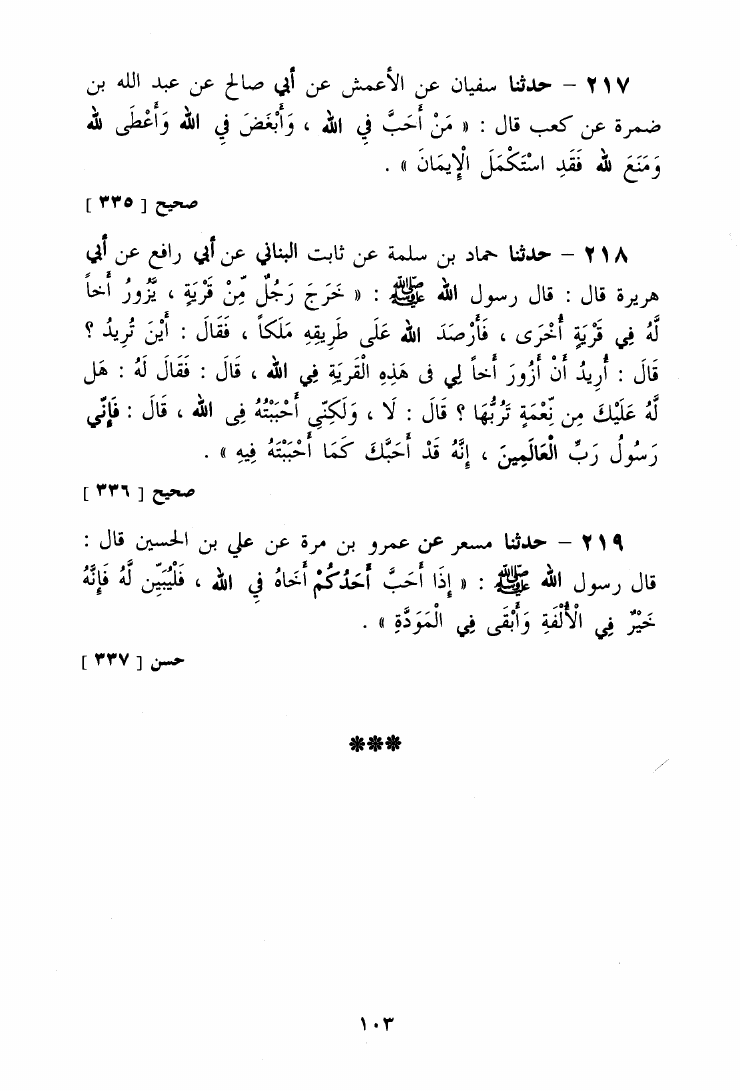 ٢١٧ – حدثنا سفيان عن الأعمش عن أبي صالح عن عبد الله بن
ضمرة عن كعب قال : « مَنْ أَحَبَّ فِي الله ، وَأَبْغَضَ فِي الله وَأَعْطَى لله
وَمَنَعَ لله فَقَدِ اسْتَكْمَلَ الْإِيمَانَ » .
صحيح [ ٣٣٥ ]
٢١٨ – حدثنا حماد بن سلمة عن ثابت البناني عن أبي رافع عن أبي
هريرة قال : قال رسول الله ﷺ : « خَرَجَ رَجُلٌ مِّنْ قَرْيَةٍ ، يَّزُورُ أَخاً
لَّهُ فِي قَرْيَةٍ أُخْرَى ، فَأَرْصَدَ الله عَلَى طَرِيقِهِ مَلَكاً ، فَقَالَ : أَيْنَ تُرِيدُ ؟
قَالَ : أُرِيدُ أَنْ أَزُورَ أَخاً لِي فى هَذِهِ الْقَرْيَةِ فِي الله ، قَالَ : فَقَالَ لَهُ : هَل
لَّهُ عَلَيْكَ مِن نِّعْمَةٍ تَرُبُّهَا ؟ قَالَ : لَا ، وَلَكِنِّى أَحْبَبْتُهُ فِى الله ، قَالَ : فَإِنِّي
رَسُولُ رَبِّ الْعَالَمِينَ ، إِنَّهُ قَدْ أَحَبَّكَ كَمَا أَحْبَبْتَهُ فِيهِ » .
صحيح [ ٣٣٦ ]
٢١٩ – حدثنا مسعر عن عمرو بن مرة عن علي بن الحسين قال :
قال رسول الله ﷺ : « إِذَا أَحَبَّ أَحَدُكُمْ أَخَاهُ فِي الله ، فَلْيُبَيِّن لَّهُ فَإِنَّهُ
خَيْرٌ فِي الْأُلْفَةِ وَأَبْقَى فِي الْمَوَدَّةِ » .
حسن [ ٣٣٧ ]
***
١٠٣